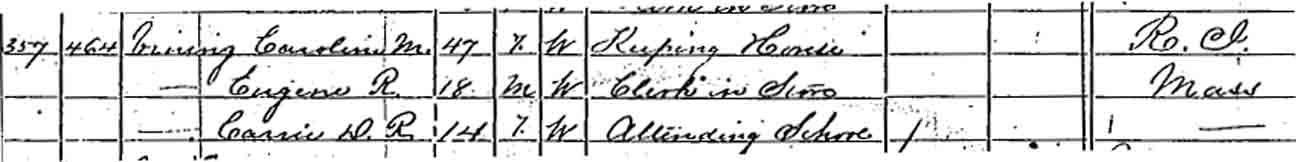 357 464 Vining Caroline M. 47 F. W Keeping House R. I.
— Eugene R. 18 M W Clerk in Store Mass
— Carrie D. R. 14 F. W Attending School / —